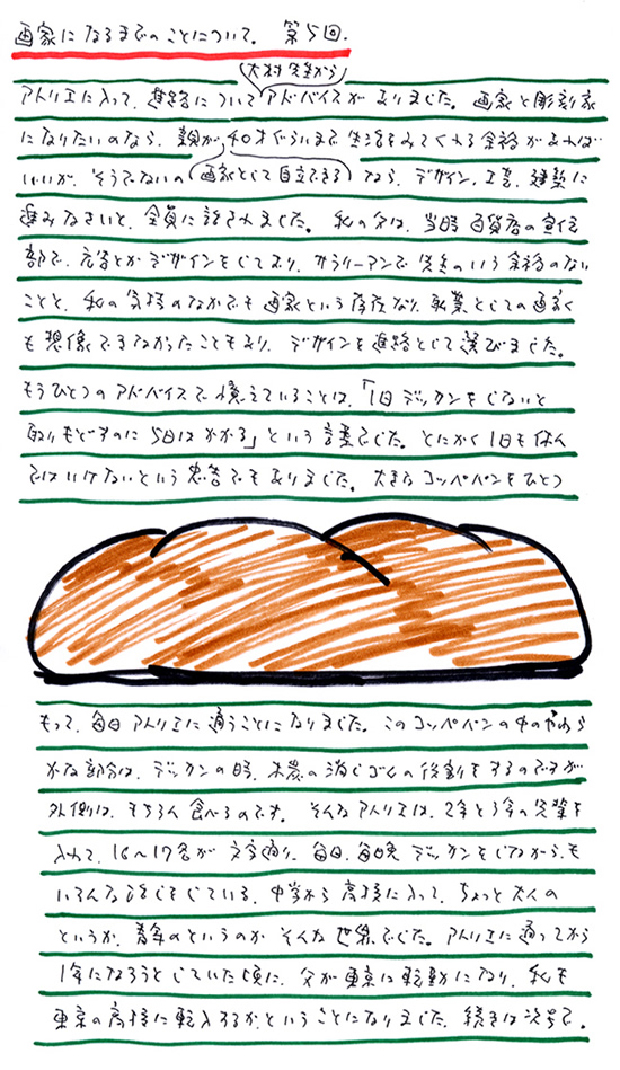 画家になるまでのことについて。 第5回.
大村先生から
アトリエに入って、進路についてアドバイスがありました。画家と彫刻家
になりたいのなら、親が40才ぐらいまで生活をみてくれる余裕があれば
いいが、そうでないの(画家として自立できる)なら、デザイン、工芸、建築に
進みなさいと、全員に話されました。私の父は、当時百貨店の宣伝
部で、広告とかデザインをしており、サラリーマンで先生のいう余裕のない
ことと、私の気持のなかでも画家という存在なり、職業としての画家
も想像できなかったこともあり、デザインを進路として選びました。
もうひとつのアドバイスで憶えていることは、「1日デッサンをしないと
取りもどすのに5日はかかる」という言葉でした。とにかく1日も休ん
ではいけないという忠告でもありました。大きなコッペパンをひとつ
もって、毎日アトリエに通うことになりました。このコッペパンの中のやわら
かな部分は、デッサンの時、木炭の消しゴムの役割をするのですが
外側は、もちろん食べるのです。そんなアトリエは、2年と3年の先輩を
入れて、16〜17名が文字通り、毎日、毎晩デッサンをしながらも
いろんな話をしている。中学から高校に入って、ちょっと大人の
というか、青年のというのか、そんな世界でした。アトリエに通ってから
1年になろうとしていた頃に、父が東京に転勤になり、私も
東京の高校に転入するか、ということになりました。続きは次号で。